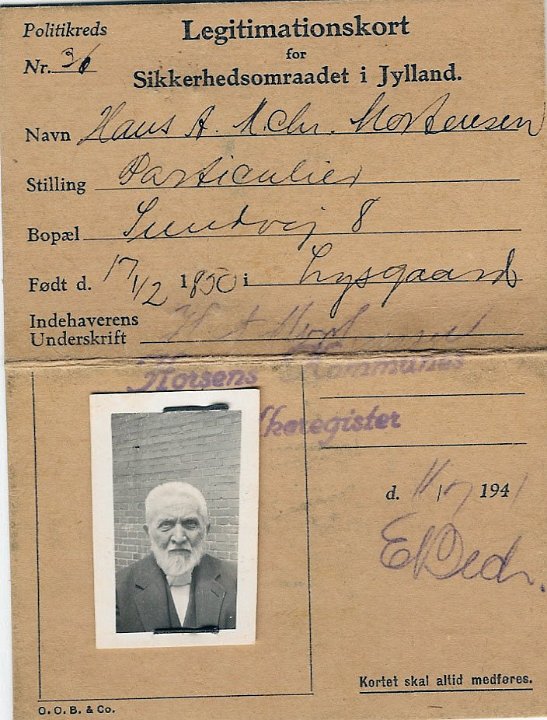 Politikreds
Nr. 36
Legitimationskort
for
Sikkerhedsomraadet i Jylland.
Navn Hans A. M. Chr. Mortensen
Stilling Particulier
Bopæl Sundvej 8
Født d. 17/12 1850 i Lysgaard
Indehaverens
Underskrift H A
Horsens Kommunes
Folkeregister
d. 194
Kortet skal altid medføres.
O. O. B. & Co.